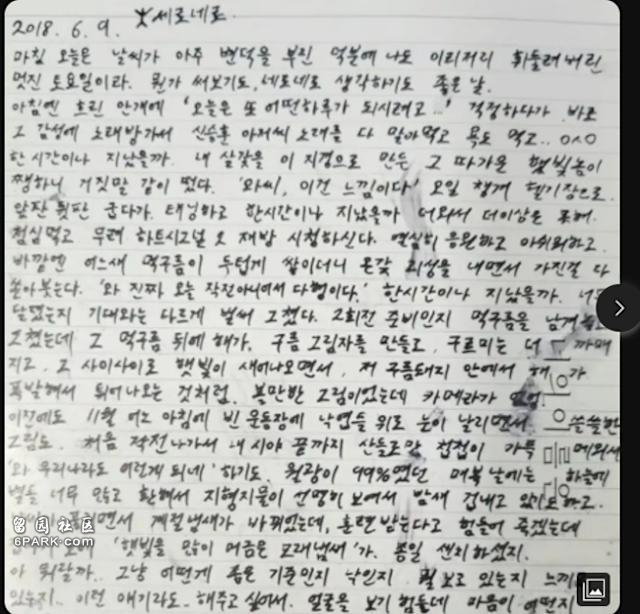 2018. 6. 9. 세로네로.
마침 오늘은 날씨가 아주 변덕을 부린 덕분에 나도 이리저리 휘둘려버린
멋진 토요일이라. 뭔가 써보기도, 세로네로 생각하기도 좋은 날.
아침엔 흐린 안개에 '오늘은 또 어떤하루가 되시려고...' 걱정하다가 바로
그 감성에 노래방가서 신승훈 아저씨 노래를 다 말아먹고 욕도 먹고..
한시간이나 지났을까. 내 살갗을 이 지경으로 만든 그 따가운 햇빛놈이
쨍하니 거짓말 같이 떴다. '와씨, 이건 느낌이다' 오일 챙겨 헬기장으로.
앞판 뒷판 굽다가. 태닝하고 한시간이나 지났을까 더워서 더이상은 못해.
점심먹고 무려 하트시그널 2 재방 시청하신다. 열심히 응원하고 아쉬워하고.
바깥엔 어느새 먹구름이 두텁게 쌓이더니 온갖 괴성을 내면서 가진걸 다
쏟아붓는다. '와 진짜 오늘 작전아니어서 다행이다.' 한시간이나 지났을까.
달랬는지 기대와는 다르게 벌써 그쳤다. 2회전 준비인지 먹구름을 남겨
그쳤는데 그 먹구름 뒤에 해가. 구름 그림자를 만들고, 구르미는 더 까매
지고, 그 사이사이로 햇빛이 새어나오면서, 저 구름돼지 안에서 해가
폭발해서 튀어나오는 것처럼. 볼만한 그림이었는데 카메라가 없음.
이전에도 11월 어느 아침에 빈 운동장에 낙엽들 위로 눈이 날리면서 쓸쓸한
그림도. 처음 작전나가서 내 시야 끝까지 산들로만 첩첩이 가득 메워서
'와 우리나라도 이런게 되네' 하기도. 월광이 99%였던 매복 날에는 하늘에
별들 너무 많고 환해서 지형지물이 선명히 보여서 밤새 겁내고 있기도하고.
면서 계절냄새가 바뀌었는데, 훈련받는다고 힘들어 죽겠는데
'햇빛을 많이 머금은 모래냄새'가. 종일 센치하셨지.
아 뭐랄까.. 그냥 어떻게 좋은 기준인지 낙인지 뭘 보고 있는지 느끼
있는지.. 이런 얘기라도.. 해주고 싶어서. 얼굴을 보기 힘든데 마음이 어떤지
믿음
留园社区
6PARK.COM